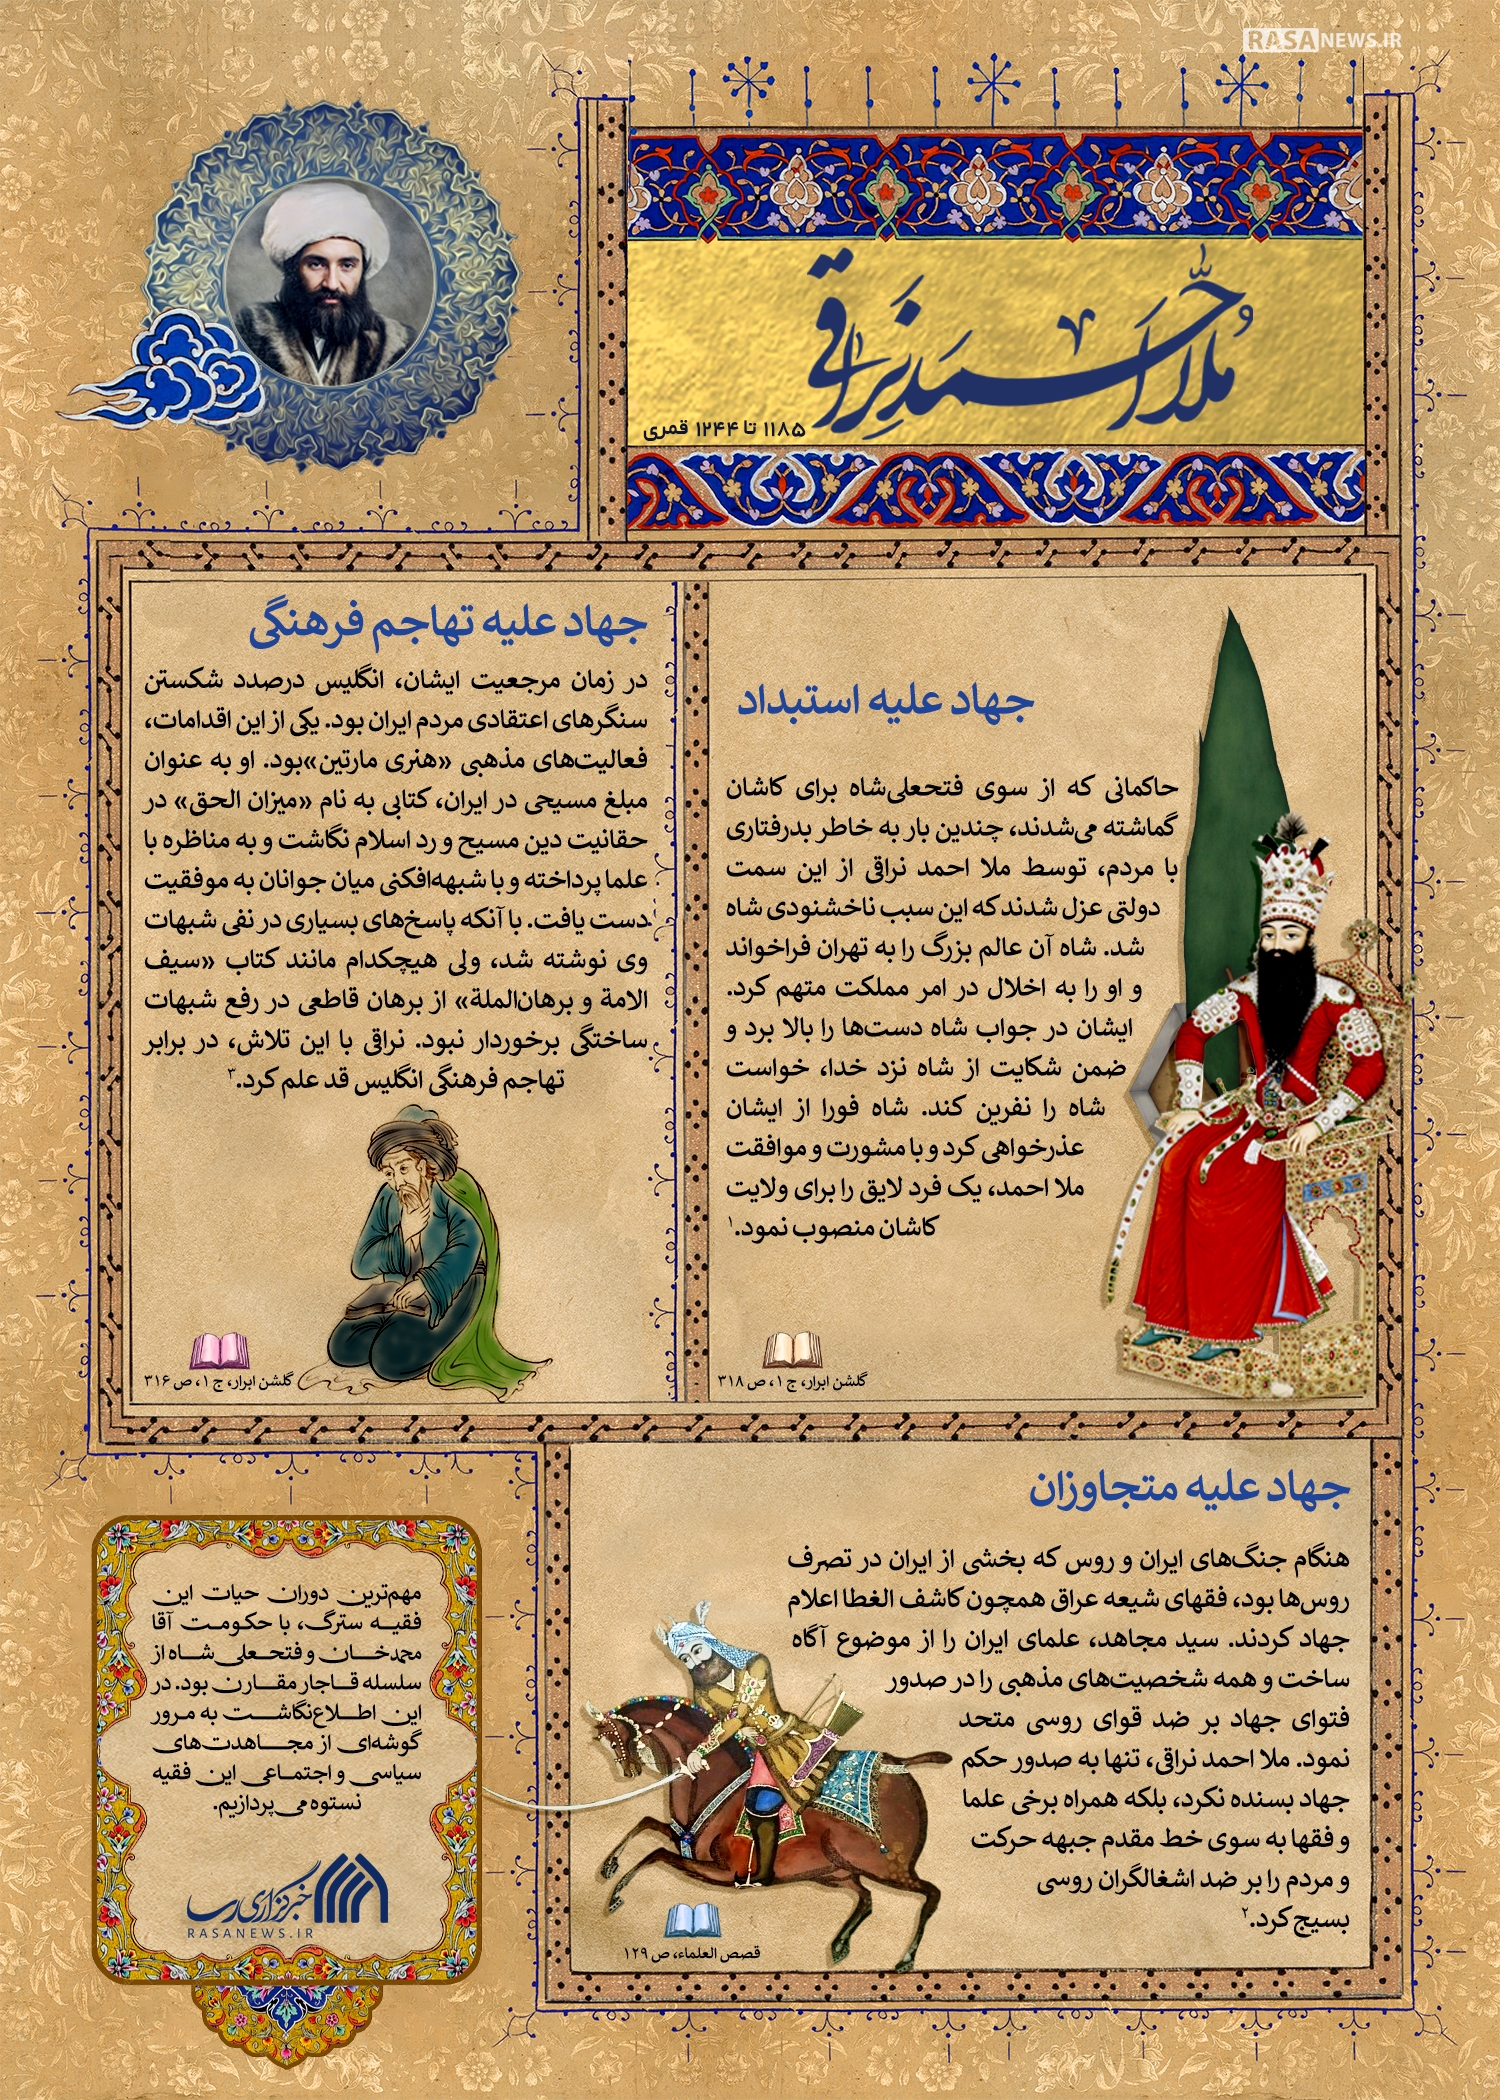 RASANEWS.IR
ملا احمد نراقی
۱۱۸۵ تا ۱۲۴۴ قمری
جهاد علیه استبداد
حاکمانی که از سوی فتحعلی‌شاه برای کاشان
گماشته می‌شدند، چندین بار به خاطر بدرفتاری
با مردم، توسط ملا احمد نراقی از این سمت
دولتی عزل شدند که این سبب ناخشنودی شاه
شد. شاه آن عالم بزرگ را به تهران فراخواند
و او را به اخلال در امر مملکت متهم کرد.
ایشان در جواب شاه دست‌ها را بالا برد و
ضمن شکایت از شاه نزد خدا، خواست
شاه را نفرین کند. شاه فورا از ایشان
عذرخواهی کرد و با مشورت و موافقت
ملا احمد، یک فرد لایق را برای ولایت
کاشان منصوب نمود.۱
گلشن ابرار، ج ۱، ص ۳۱۸
جهاد علیه تهاجم فرهنگی
در زمان مرجعیت ایشان، انگلیس درصدد شکستن
سنگرهای اعتقادی مردم ایران بود. یکی از این اقدامات،
فعالیت‌های مذهبی «هنری مارتین»بود. او به عنوان
مبلغ مسیحی در ایران، کتابی به نام «میزان الحق» در
حقانیت دین مسیح و رد اسلام نگاشت و به مناظره با
علما پرداخته و با شبهه‌افکنی میان جوانان به موفقیت
دست یافت. با آنکه پاسخ‌های بسیاری در نفی شبهات
وی نوشته شد، ولی هیچکدام مانند کتاب «سیف
الامة و برهان‌الملة» از برهان قاطعی در رفع شبهات
ساختگی برخوردار نبود. نراقی با این تلاش، در برابر
تهاجم فرهنگی انگلیس قد علم کرد.۳
گلشن ابرار، ج ۱، ص ۳۱۶
جهاد علیه متجاوزان
هنگام جنگ‌های ایران و روس که بخشی از ایران در تصرف
روس‌ها بود، فقهای شیعه عراق همچون کاشف الغطا اعلام
جهاد کردند. سید مجاهد، علمای ایران را از موضوع آگاه
ساخت و همه شخصیت‌های مذهبی را در صدور
فتوای جهاد بر ضد قوای روسی متحد
نمود. ملا احمد نراقی، تنها به صدور حکم
جهاد بسنده نکرد، بلکه همراه برخی علما
و فقها به سوی خط مقدم جبهه حرکت
و مردم را بر ضد اشغالگران روسی
بسیج کرد.۲
قصص العلماء، ص ۱۲۹
مهم‌ترین دوران حیات این
فقیه سترگ، با حکومت آقا
محمدخان و فتحعلی‌شاه از
سلسله قاجار مقارن بود. در
این اطلاع‌نگاشت به مرور
گوشه‌ای از مجاهدت‌های
سیاسی و اجتماعی این فقیه
نستوه می‌پردازیم.
خبرگزاری رسا
RASANEWS.IR